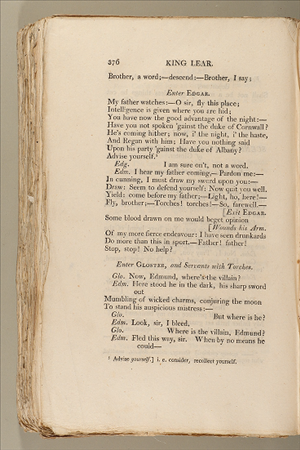 376 KING LEAR.
Brother, a word;—descend:—Brother, I say;
Enter EDGAR.
My father watches:—O sir, fly this place;
Intelligence is given where you are hid;
You have now the good advantage of the night:—
Have you not spoken 'gainst the duke of Cornwall?
He's coming hither; now, i' the night, i' the haste,
And Regan with him; Have you nothing said
Upon his party 'gainst the duke of Albany?
Advise yourself.¹
Edg. I am sure on't, not a word.
Edm. I hear my father coming,—Pardon me:—
In cunning, I must draw my sword upon you:—
Draw: Seem to defend yourself: Now quit you well.
Yield: come before my father;—Light, ho, here!—
Fly, brother;—Torches! torches!—So, farewell.—
[Exit EDGAR.
Some blood drawn on me would beget opinion
[Wounds his Arm.
Of my more fierce endeavour: I have seen drunkards
Do more than this in sport.—Father! father!
Stop, stop! No help?
Enter GLOSTER, and Servants with Torches.
Glo. Now, Edmund, where's the villain?
Edm. Here stood he in the dark, his sharp sword
out
Mumbling of wicked charms, conjuring the moon
To stand his auspicious mistress:—
Glo. But where is he?
Edm. Look, sir, I bleed.
Glo. Where is the villain, Edmund?
Edm. Fled this way, sir. When by no means he
could—
¹ Advise yourself.] i. e. consider, recollect yourself.